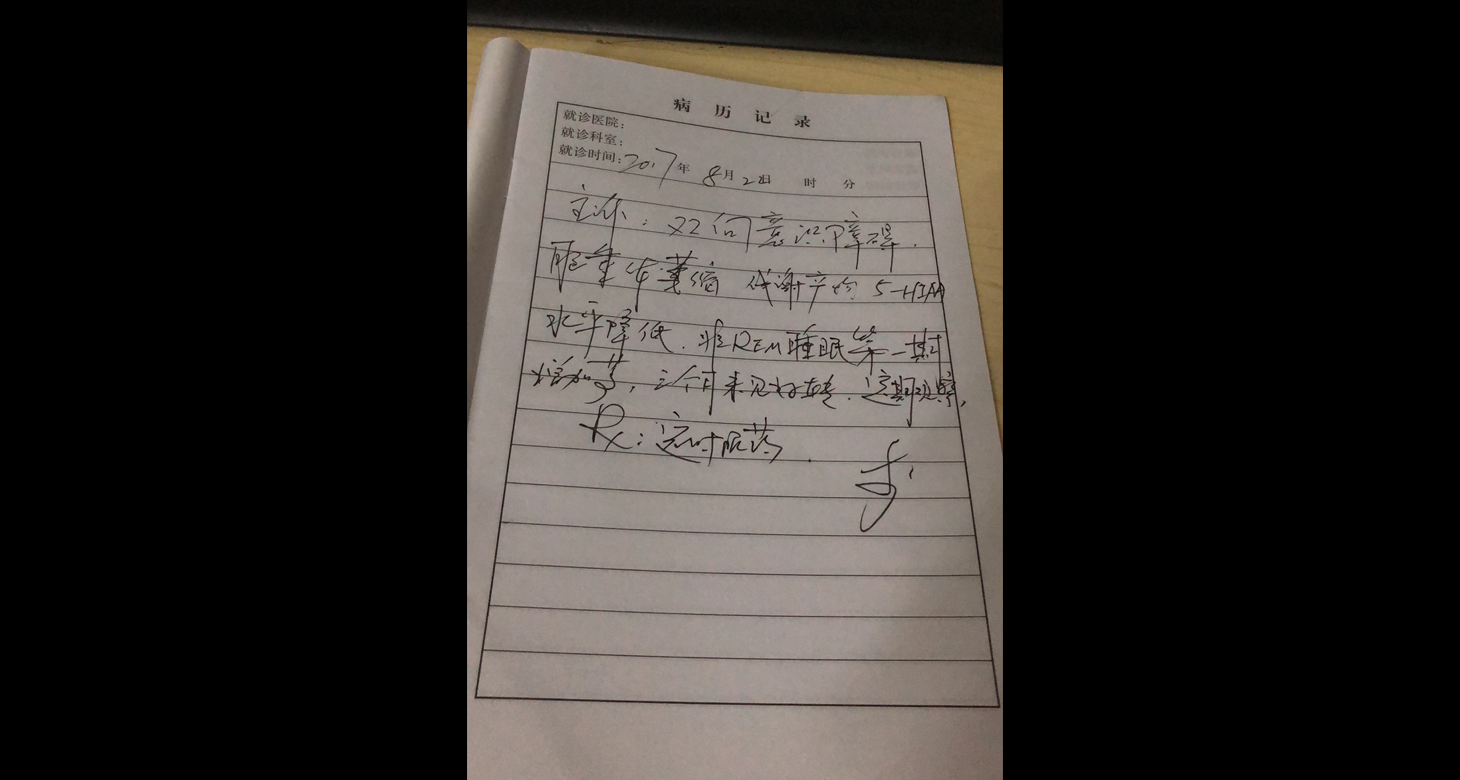 病历记录
就诊医院:
就诊科室:
就诊时间:2017年 8月2日 时 分
主诉:双向意识障碍.
脑垂体萎缩 代谢产物 5-HIAA
水平降低.非REM睡眠第一期
增加多,三个月未见好转.定期观察,
Rx:定时服药.